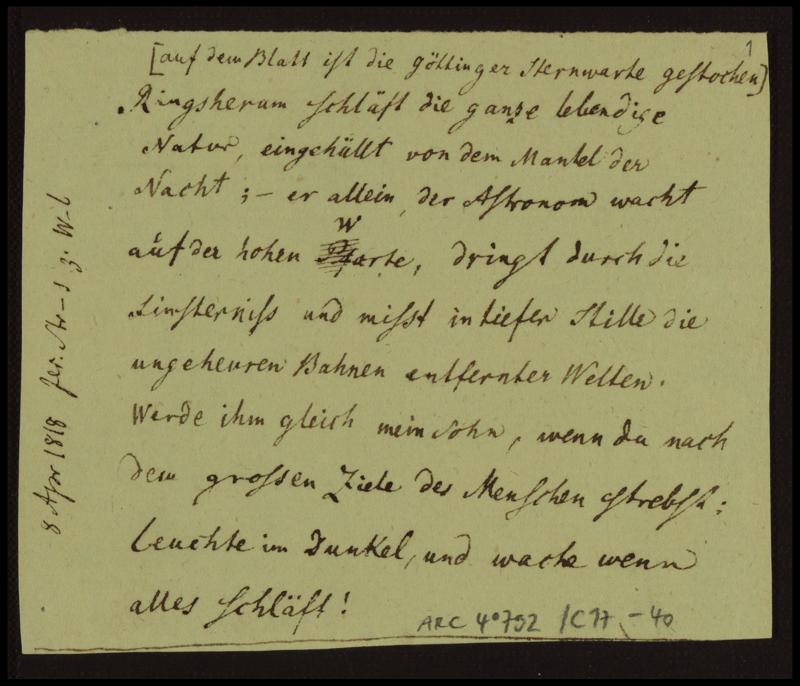 1
[auf dem Blatt ist die göttinger Sternwarte gestochen]
Ringsherum schläft die ganze lebendige
Natur, eingehüllt von dem Mantel der
Nacht; – er allein, der Astronom wacht
auf der hohen Warte, dringt durch die
Finsterniss und misst in tiefer Stille die
ungeheuren Bahnen entfernter Welten.
Werde ihm gleich mein Sohn, wenn du nach
dem grossen Ziele des Menschen strebst:
leuchte im Dunkel, und wache wenn
alles schläft!
ARC 4°792 /C17 –40
8 Apr 1818 fer. Str–s z. W–l